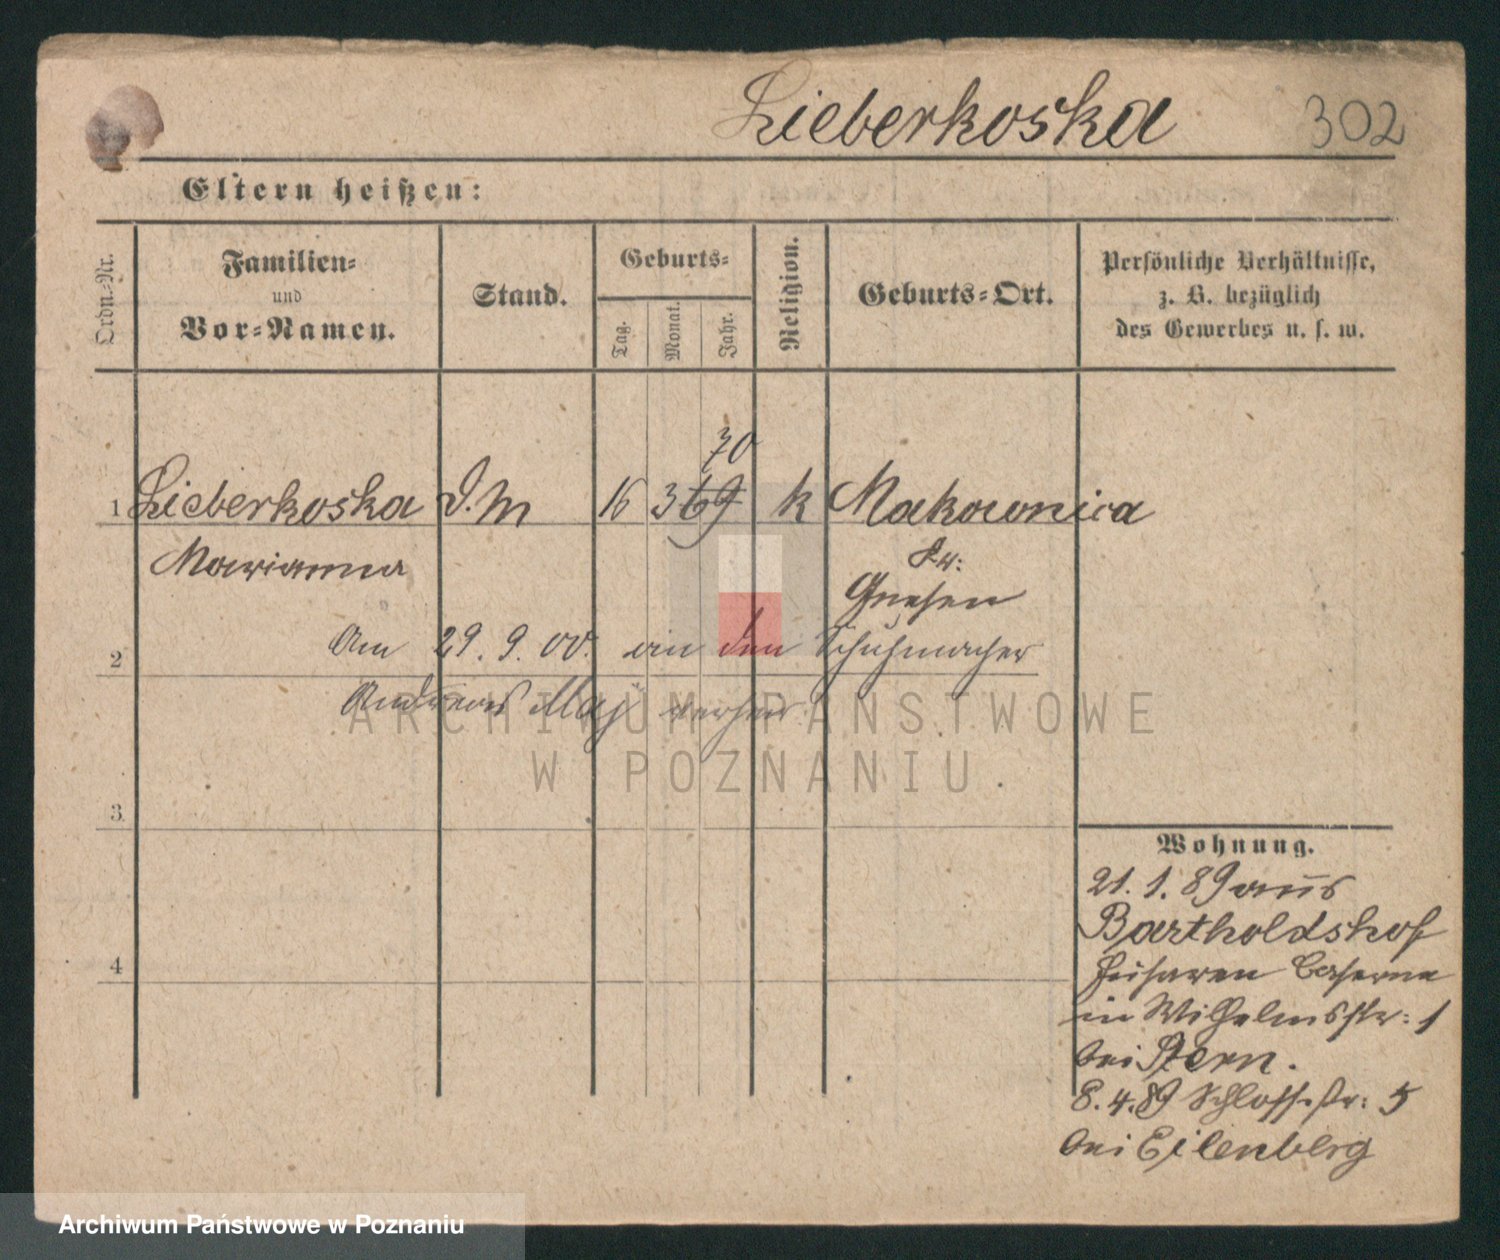 Lieberkoska 302
Eltern heißen:
Ordn.-Nr.
Familien-
und
Vor-Namen.
Stand.
Geburts-
Tag.
Monat.
Jahr.
Religion.
Geburts-Ort.
Persönliche Verhältnisse,
z. B. bezüglich
des Gewerbes u. s. w.
70
1 Lieberkoska D.M 16 3 69 k Makownica
Marianna Kr:
Gnesen
2 Am 29. 9. 00. an den Schuhmacher
Andreas Maj verheir
ARCHIWUM PAŃSTWOWE
W POZNANIU.
3
4
Wohnung.
21. 1. 89 aus
Bartholdshof
Husaren Caserne
in Wilhelmsstr: 1
bei Stern.
8. 4. 89 Schlosstr: 5
bei Eilenberg
Archiwum Państwowe w Poznaniu